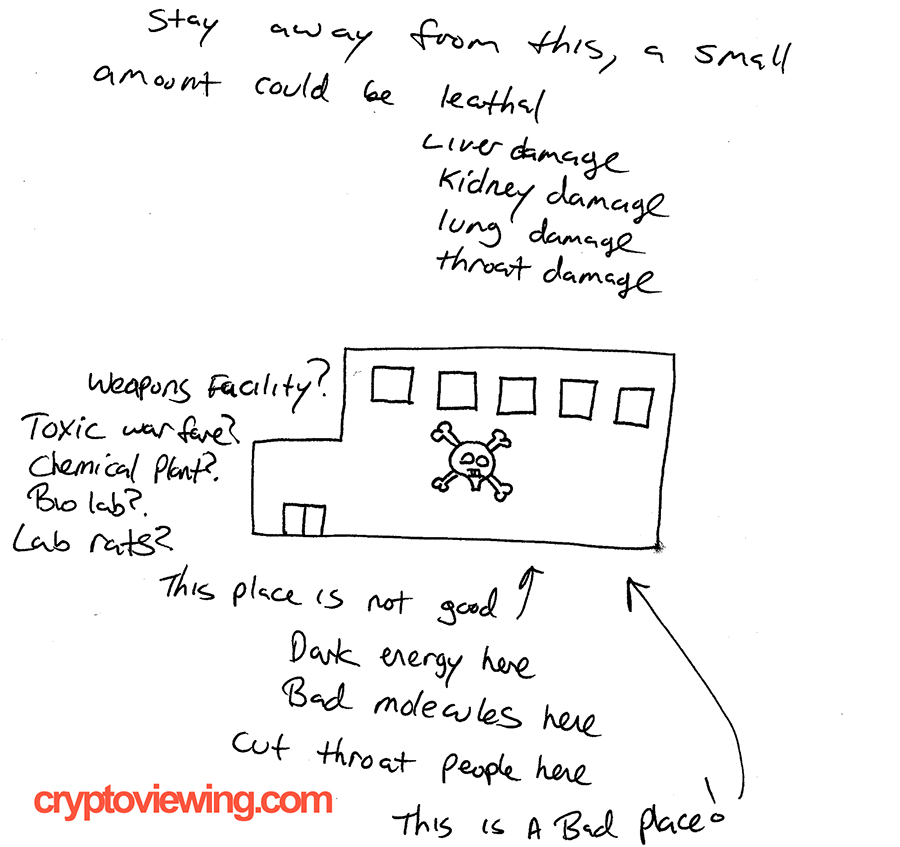 Stay away from this, a small
amount could be leathal
Liver damage
Kidney damage
lung damage
throat damage
Weapons Facility?
Toxic warfare?
Chemical Plant?.
Bio lab?.
Lab rats?
This place is not good
Dark energy here
Bad molecules here
Cut throat people here
This is A Bad place!
cryptoviewing.com